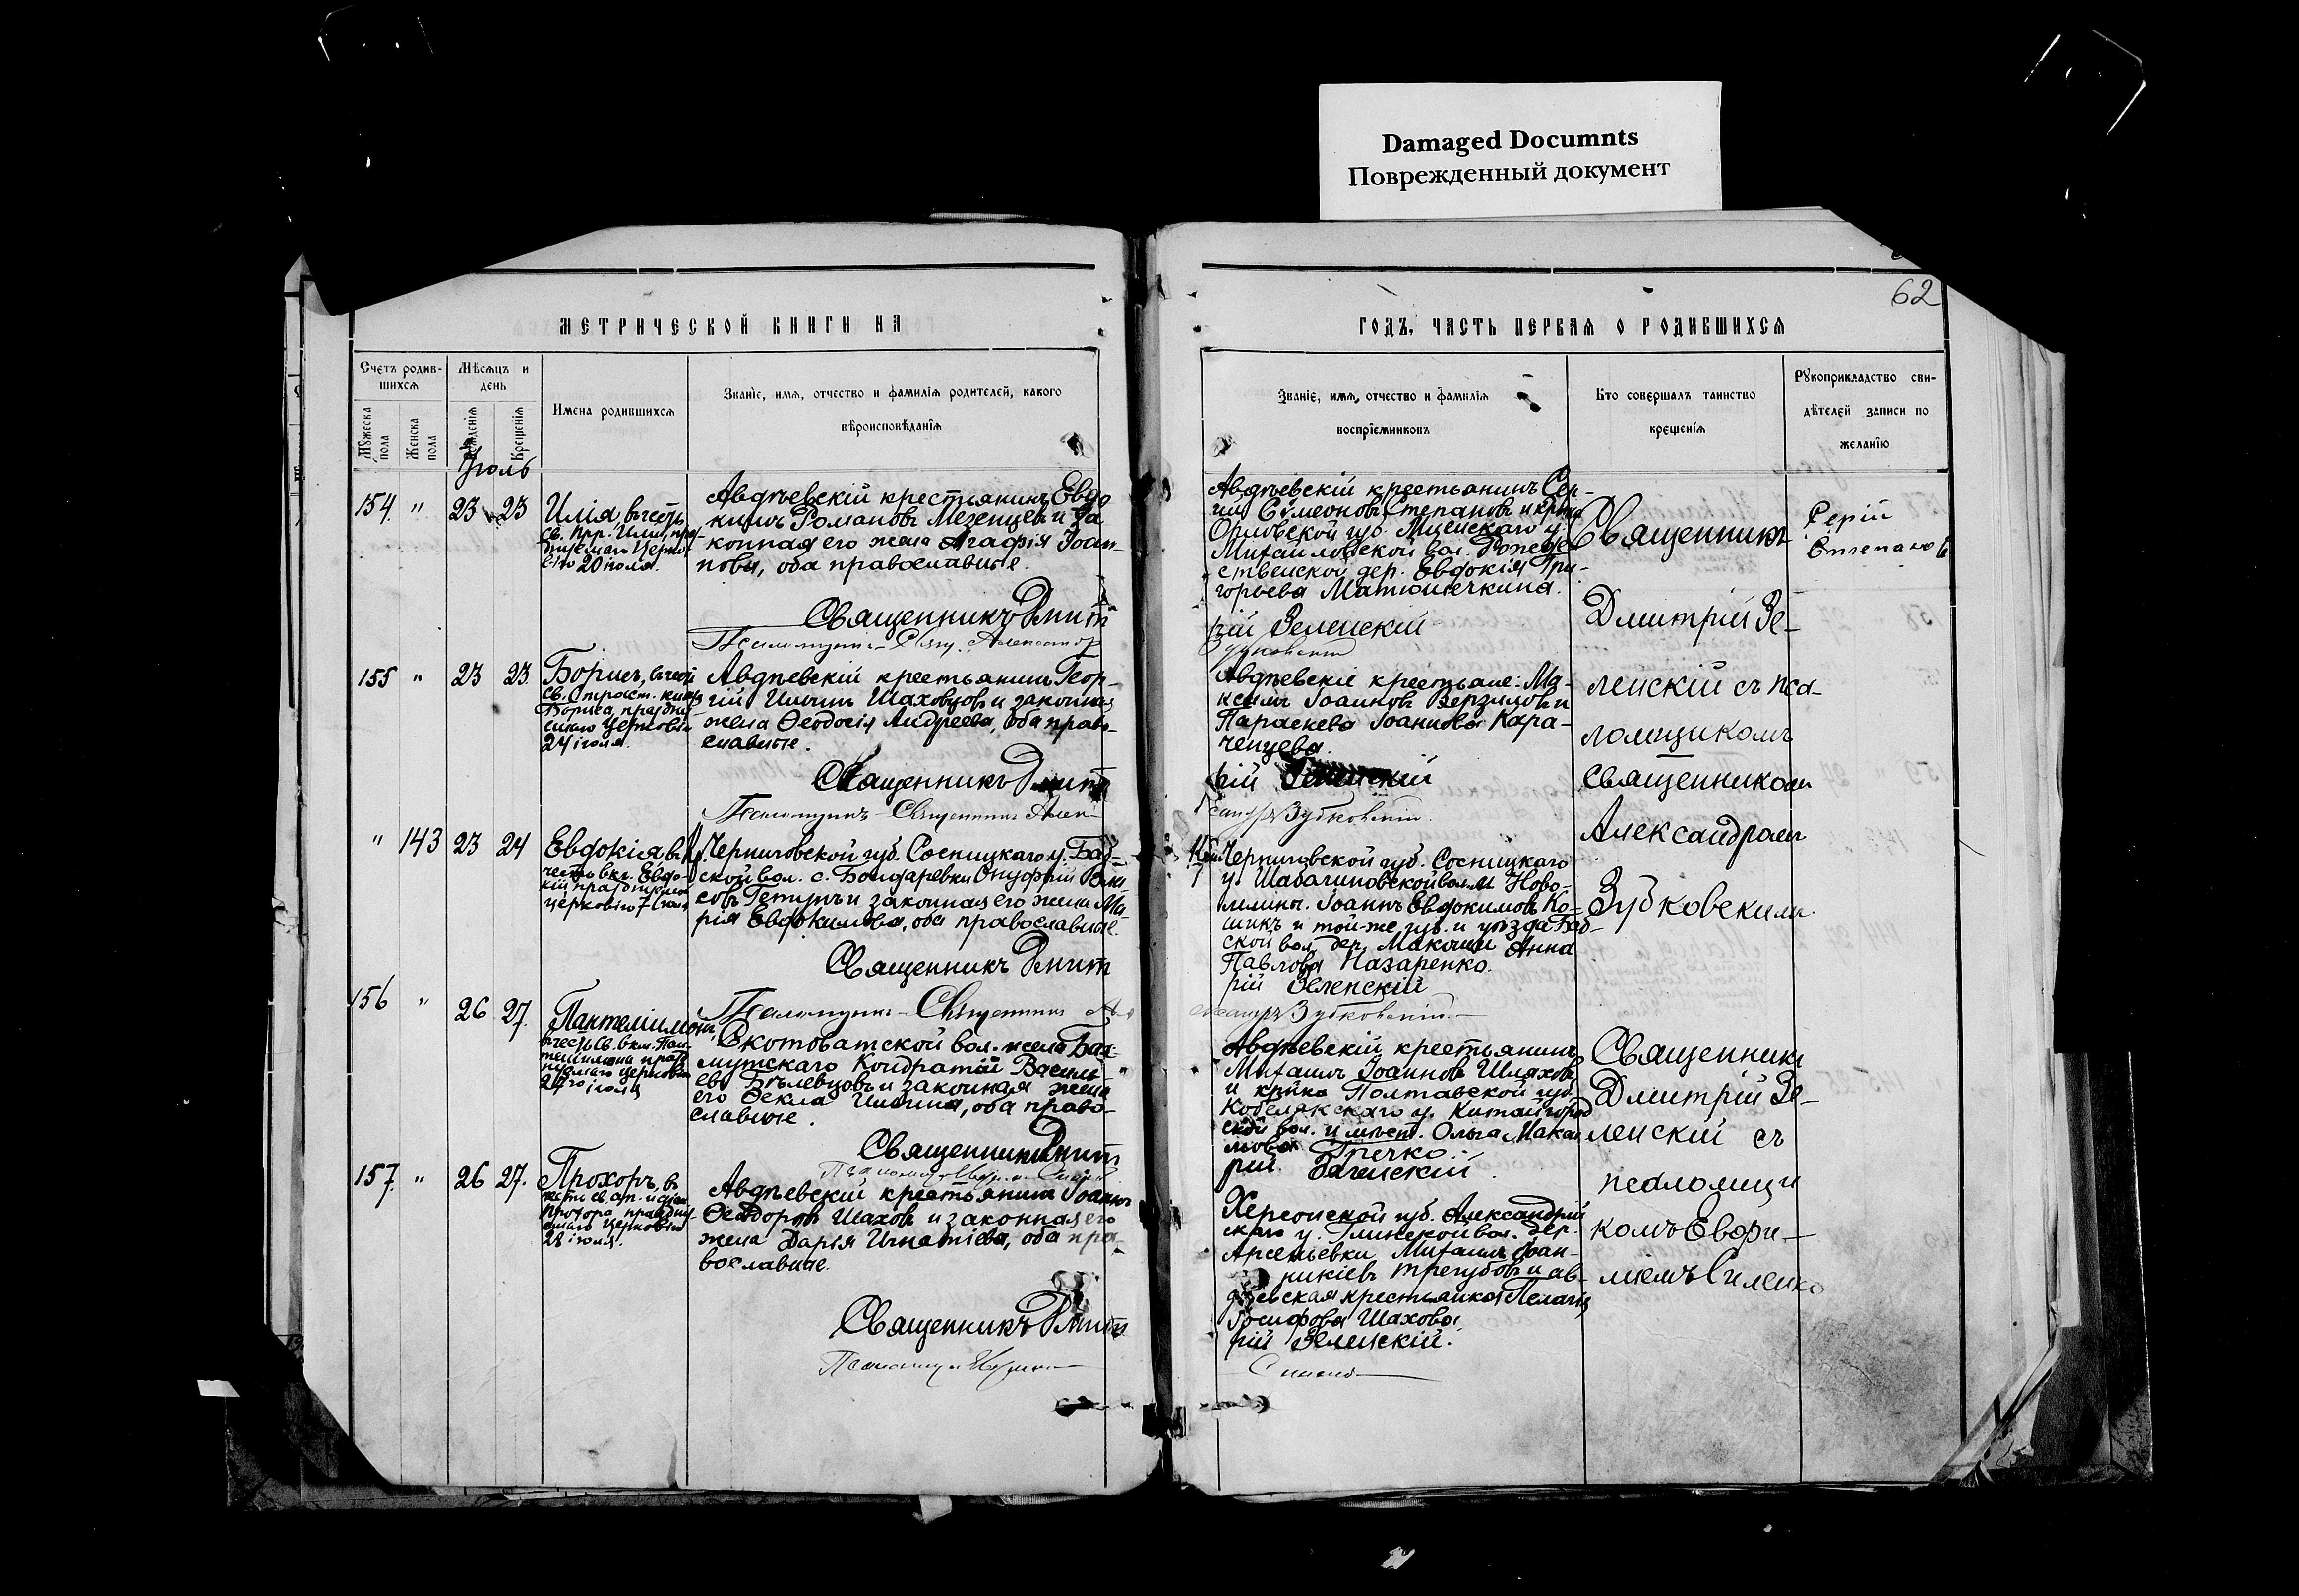 Damaged Documnts
Поврежденный документ
62
МЕТРИЧЕСКОЙ КНИГИ НА
ГОДЪ, ЧАСТЬ ПЕРВАЯ О РОДИВШИХСЯ
Счетъ родив-
шихся
Мужеска пола
Женска пола
Мѣсяцъ и
день
Рожденія
Крещенія
Имена родившихся
Званіе, имя, отчество и фамилія родителей, какого
вѣроисповѣданія
Званіе, имя, отчество и фамилія
воспріемниковъ
Кто совершалъ таинство
крещенія
Рукоприкладство сви-
дѣтелей записи по
желанію
Іюль
154 " 23 23
Илія, въ честь
св. прр. Иліи, праз-
днуемаго Церко-
вію 20 іюля.
Авдѣевскій крестьянинъ Евдо
кимъ Романовъ Мезенцевъ и за
конная его жена Агафія Іоан-
нова, оба православные.
Священникъ Дмит
Псаломщикъ-Свящ. Александр
Авдѣевскій крестьянинъ Сер-
гій Сѵмеоновъ Степановъ и кр-нка
Орловской губ. Мценскаго у.
Михайловской вол. Рождe-
ственской дер. Евдокія Гри-
горьева Матюшечкина.
рій Зеленскій
Зубковскій
Священникъ
Дмитрій Зе-
ленскій съ пса-
ломщикомъ
священникомъ
Александромъ
Зубковскимъ.
Сергій
Степановъ
155 " 23 23.
Борисъ, въ честь
св. Страст. князя
Бориса, праздну
емаго Церковію
24 іюля.
Авдѣевскій крестьянинъ Геор-
гій Ильинъ Шаховцовъ и законная
жена Ѳеодосія Андреева, оба право-
славные.
Священникъ Дмит
Псаломщикъ-Священникъ Алек-
Авдѣевскіе крестьяне: Ма-
ксимъ Іоанновъ Верзиловъ и
Параскева Іоаннова Кара-
ченцева.
рій Зеленскій
сандръ Зубковскій.
" 143 23 24
Евдокія въ
честь вкг. Евдо-
кіи празднуемой
церковію 7 іюля
Черниговской губ. Сосницкаго у. Баб-
ской вол. с. Бондаревки Онуфрій
и законная его жена Ма-
рія Евдокимова, оба православные.
Священникъ Дмит
Псаломщикъ-Священникъ
Черниговской губ. Сосницкаго
у. Шабалиновской вол.
Іоаннъ Евдокимовъ Ко-
шикъ и той-же губ. и уѣзда Баб-
ской вол. дер. Макошии Анна
Павлова Назаренко.
рій Зеленскій
Зубковскій
156 " 26 27.
Пантелиимонъ,
въ честь св. вкм. Пан-
телиимона празд
нуемаго церковію
27го іюля
Скотоватской вол. и села Бах-
мутскаго Кондратій Василь
евъ Бѣлевцовъ и законная жена
его Ѳекла Ильина, оба право-
славные.
Священникъ Дмит
Авдѣевскій крестьянинъ
Михаилъ Іоанновъ Шляховъ
и кр-нка Полтавской губ.
Кобелякскаго у. Китайгород
ской вол. и мѣст. Ольга Мака
Гречко.
рій Зеленскій
Священникъ
Дмитрій Зе-
ленскій съ
псаломщи
комъ Евфи-
міемъ Силенко
157. " 26 27.
Прохоръ, въ
честь св. ап. и діак.
Прохора праздну
емаго церковію
28 іюля.
Авдѣевскій крестьянинъ Іоаннъ
Ѳеодоровъ Шаховъ и законная его
жена Дарья Игнатіева, оба пра-
вославные.
Священникъ Дмит
Херсонской губ. Александрій
скаго у. Глинской вол. дер.
Арсеньевки Михаилъ Іоан-
никіевъ Трегубовъ и ав-
дѣевская крестьянка Пелагія
Іосифова Шахова.
рій Зеленскій.